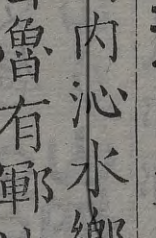 内沁水鄉
魯有鄆